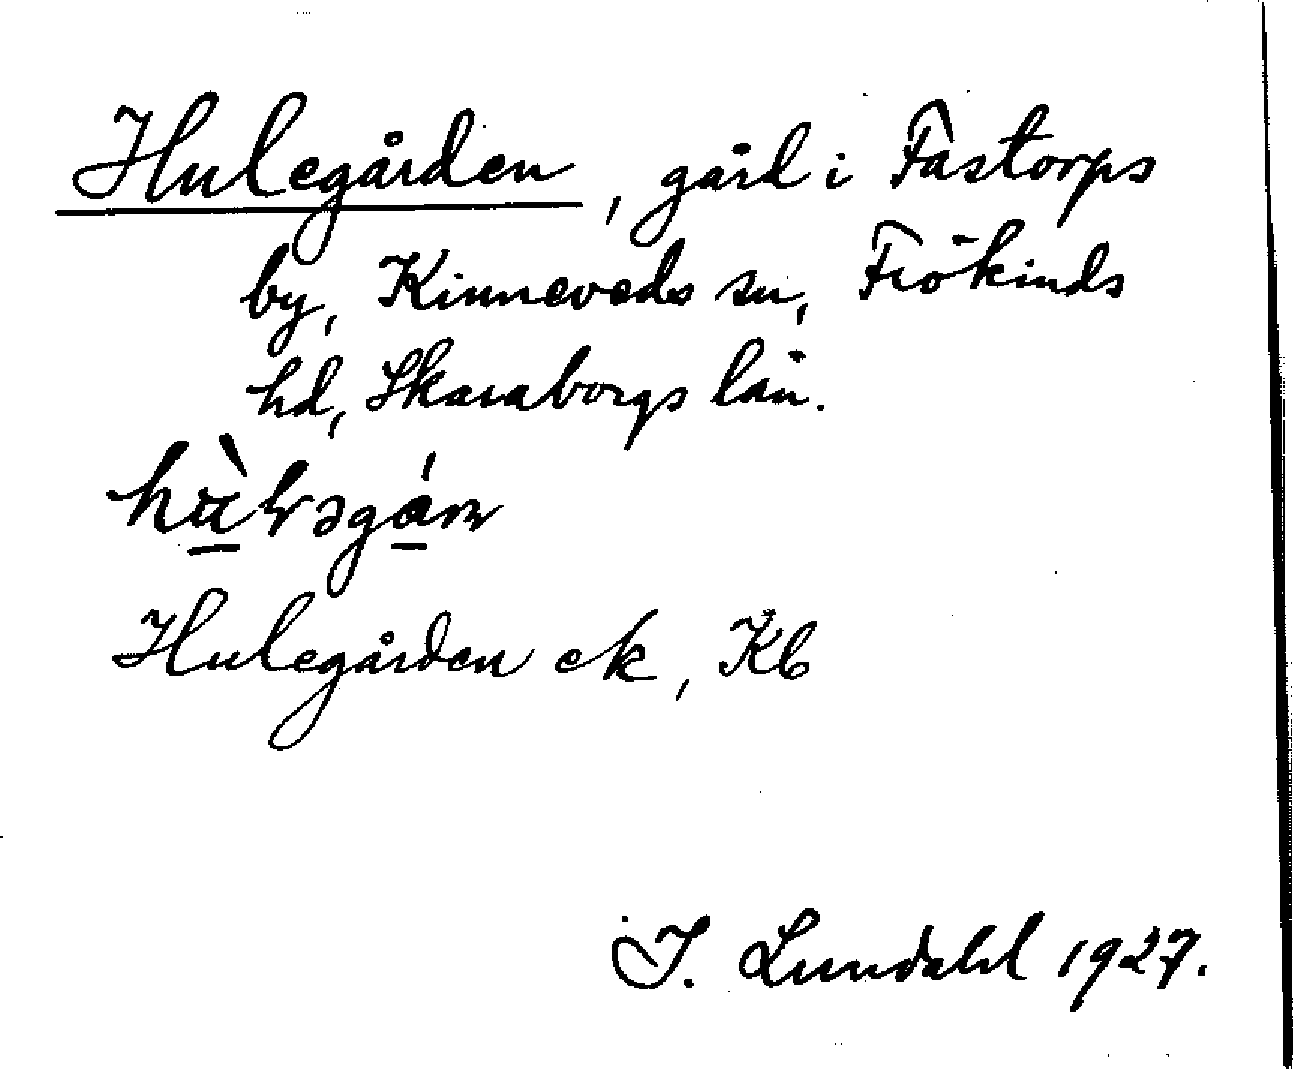 Hulegården, gård i Fastorps
by, Kinneveds sn, Frökinds
hd, Skaraborgs län.
Hulegården ek, Kb
I. Lundahl 1927.